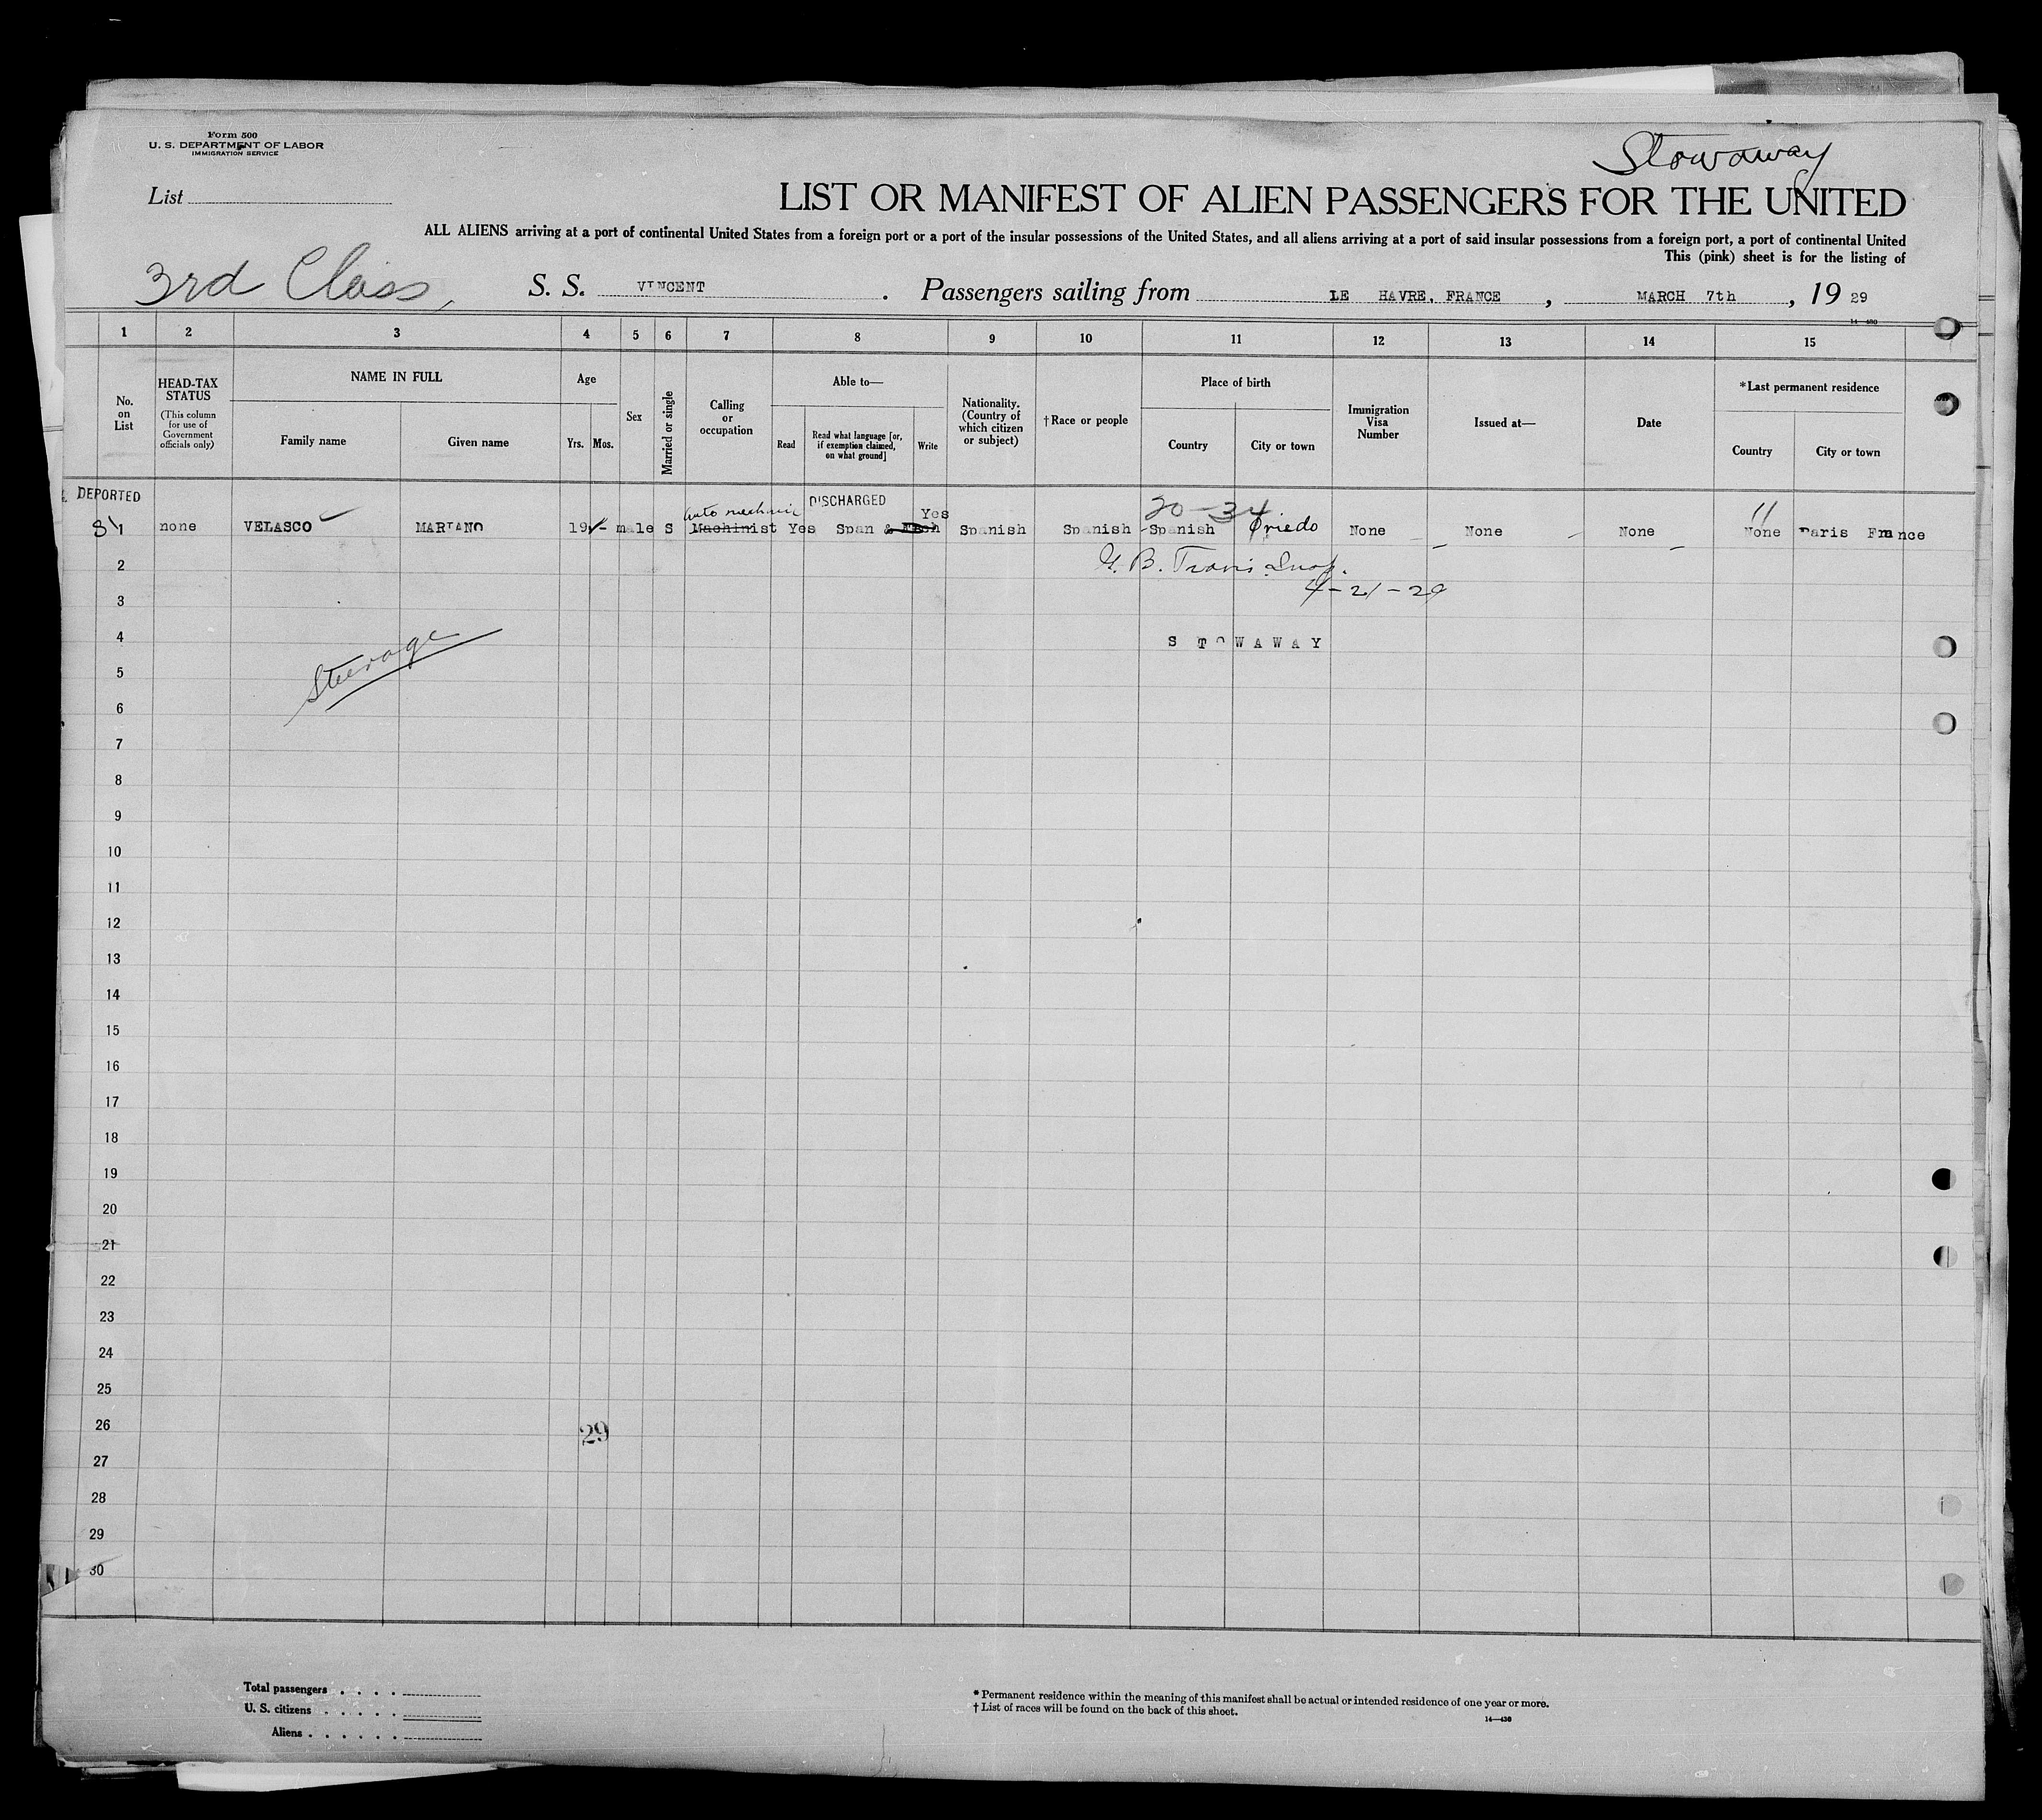 Form 500
U. S. DEPARTMENT OF LABOR
IMMIGRATION SERVICE
Stowaway
List
LIST OR MANIFEST OF ALIEN PASSENGERS FOR THE UNITED
ALL ALIENS arriving at a port of continental United States from a foreign port or a port of the insular possessions of the United States, and all aliens arriving at a port of said insular possessions from a foreign port, a port of continental United
This (pink) sheet is for the listing of
3rd Class, S. S. VINCENT . Passengers sailing from LE HAVRE, FRANCE , MARCH 7th , 19 29
14—430
1 2 3 4 5 6 7 8 9 10 11 12 13 14 15
No. on List
HEAD-TAX STATUS
(This column for use of Government officials only)
NAME IN FULL
Family name
Given name
Age
Yrs.
Mos.
Sex
Married or single
Calling or occupation
Able to—
Read
Read what language [or, if exemption claimed, on what ground]
Write
Nationality. (Country of which citizen or subject)
†Race or people
Place of birth
Country
City or town
Immigration Visa Number
Issued at—
Date
*Last permanent residence
Country
City or town
DEPORTED
DISCHARGED
auto mechanic
Yes
20-34
11
1 none VELASCO MARIANO 19 - male S Machinist Yes Span & Spanish Spanish Spanish Oviedo None None None None Paris France
2
B. Travis Insp.
3
4-21-29
4
STOWAWAY
Steerage
5
6
7
8
9
10
11
12
13
14
15
16
17
18
19
20
21
22
23
24
25
26
29
27
28
29
30
Total passengers
U. S. citizens
Aliens
* Permanent residence within the meaning of this manifest shall be actual or intended residence of one year or more.
† List of races will be found on the back of this sheet.
14—430